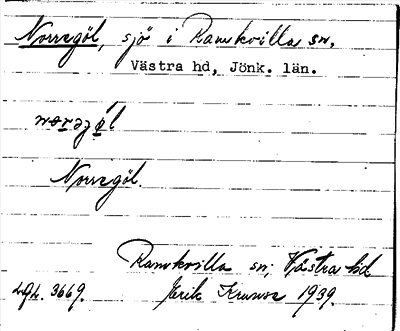 Norregöl, sjö i Ramkvilla sn,
Västra hd, Jönk. län.
Norregöl.
Ramkvilla sn, Västra hd
Lgh. 3669. Erik 1939.